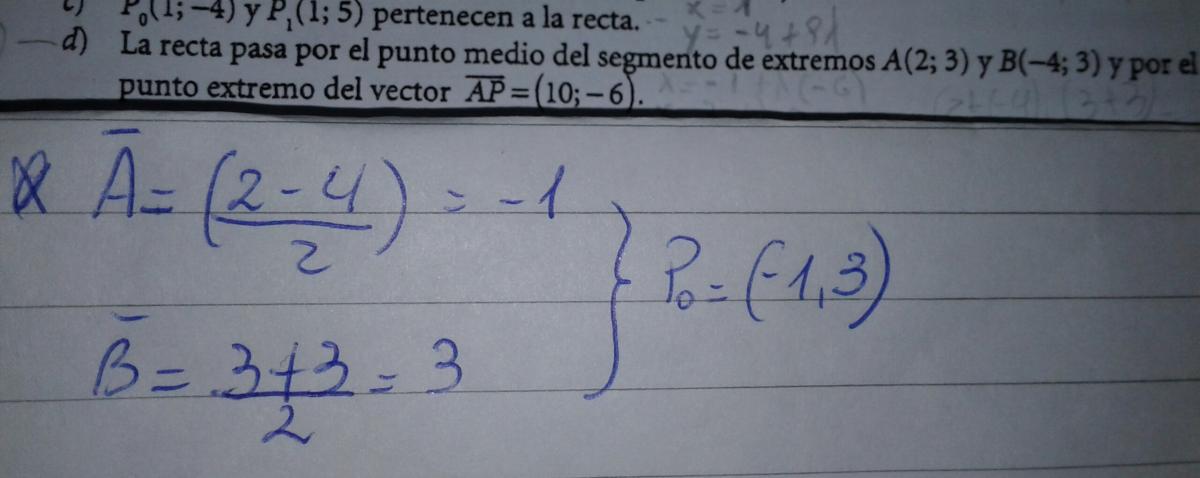 c) P₀(1; −4) y P₁(1; 5) pertenecen a la recta. x = 1
y = −4 + 9λ
d) La recta pasa por el punto medio del segmento de extremos A(2; 3) y B(−4; 3) y por el
punto extremo del vector A͞P = (10; −6).
A̅ = (2 − 4 / 2) = −1
P₀ = (−1, 3)
B̅ = 3 + 3 / 2 = 3